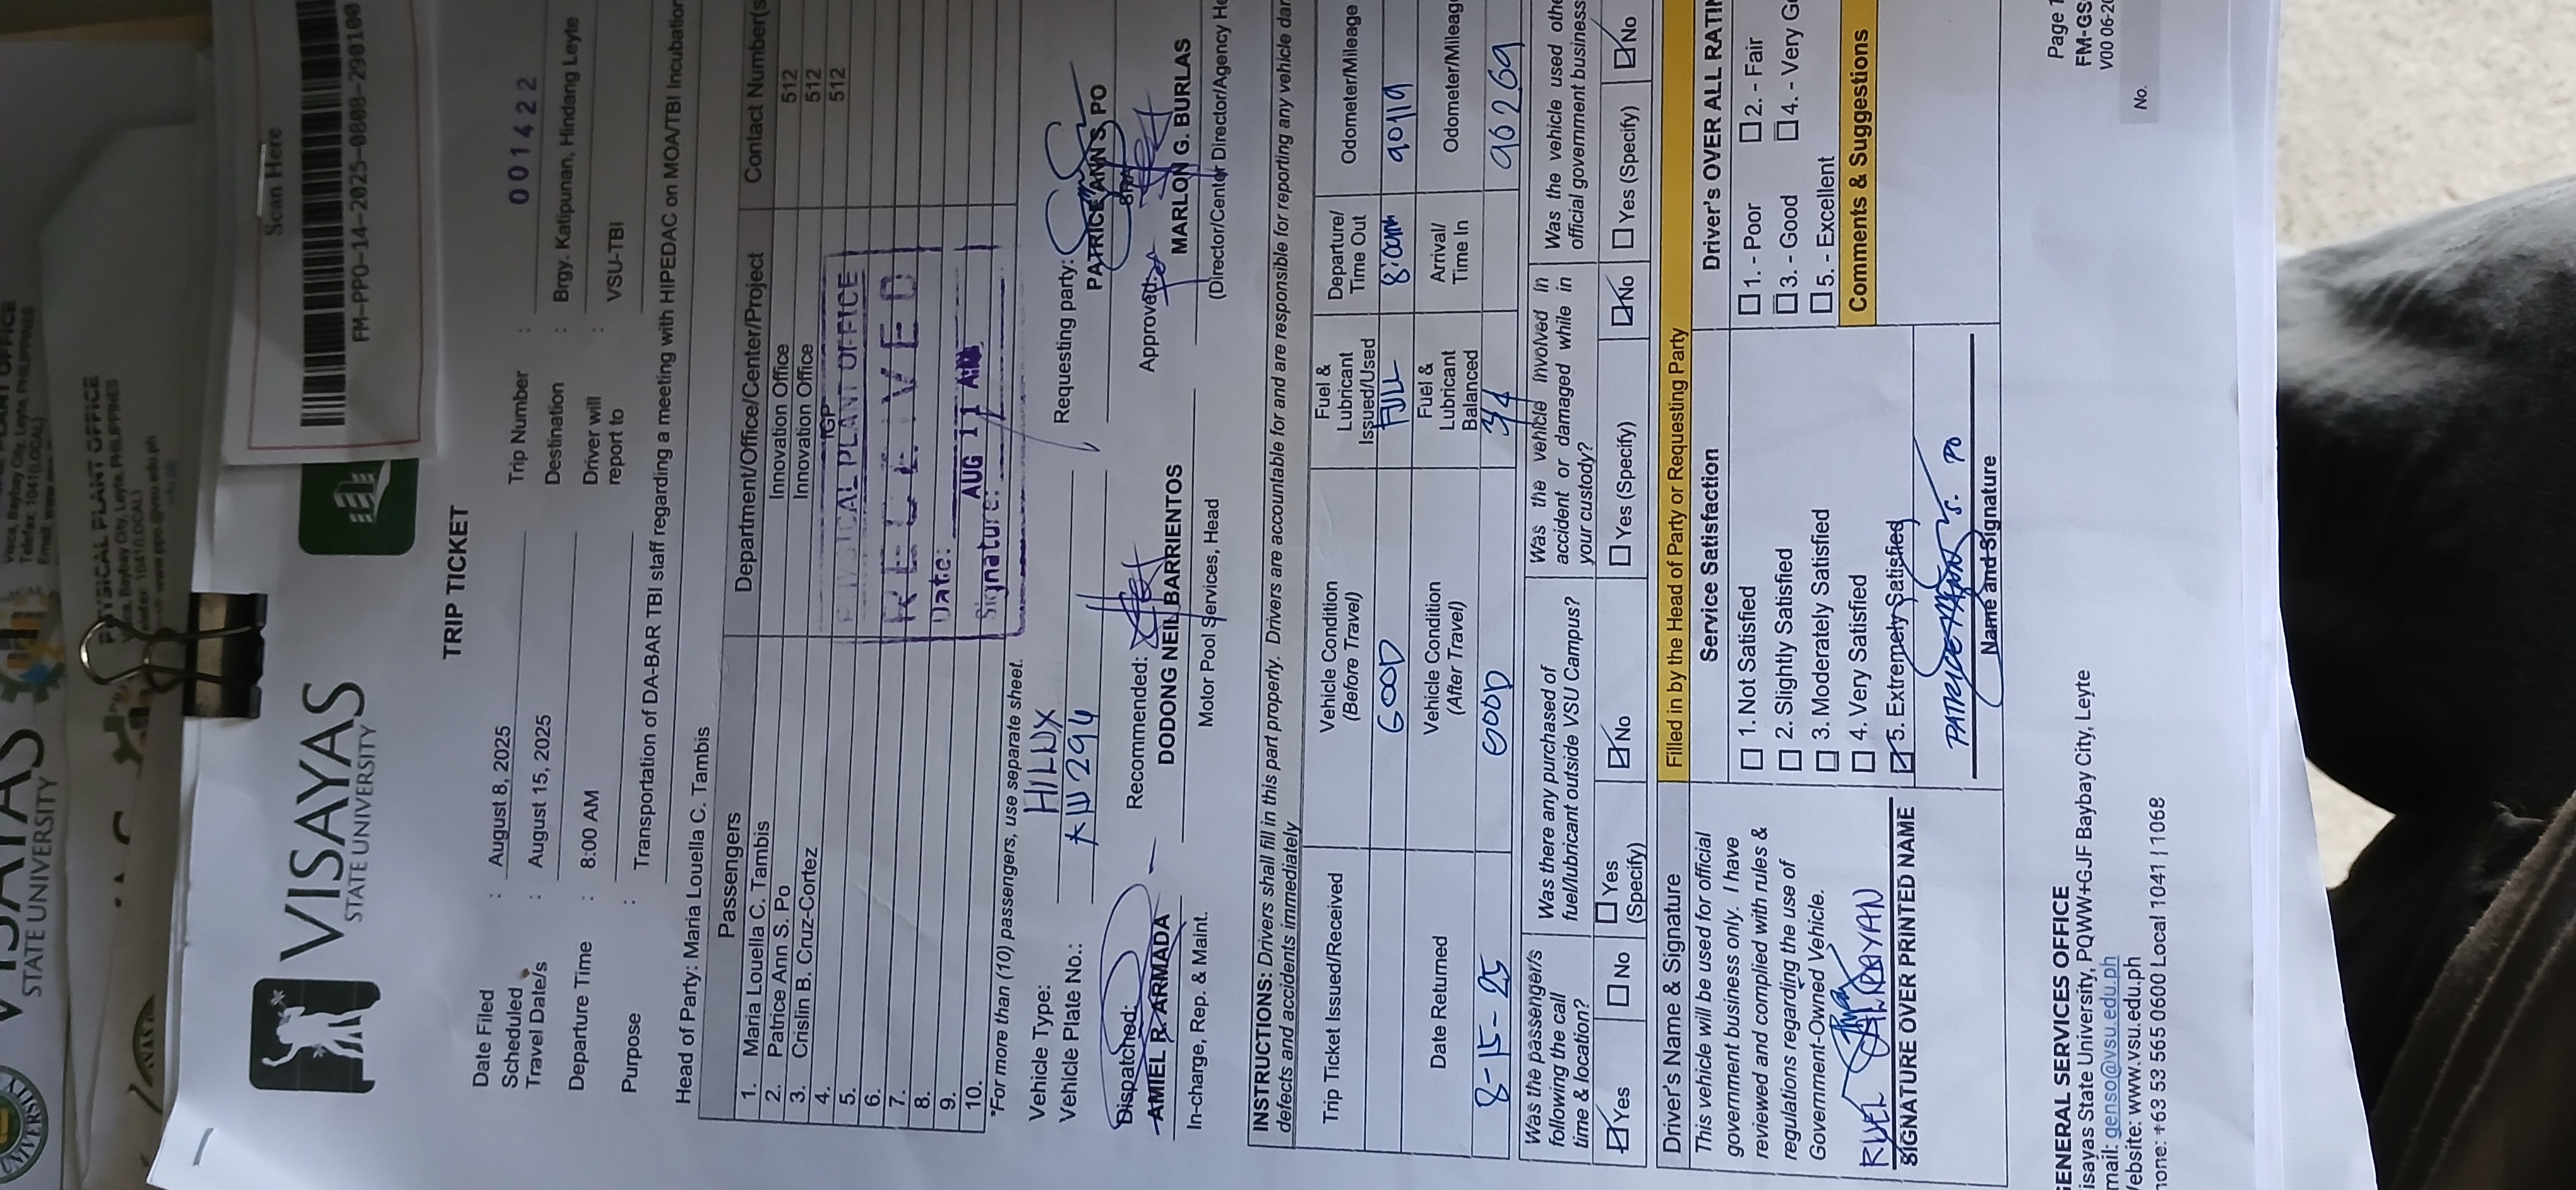 Scan Here
FM-PPO-14-2025-0808-290100
VISAYAS
STATE UNIVERSITY
PHYSICAL PLANT OFFICE
TRIP TICKET
Date Filed : August 8, 2025 Trip Number : 001422
Scheduled Travel Date/s : August 15, 2025 Destination : Brgy. Katipunan, Hindang Leyte
Departure Time : 8:00 AM Driver will report to : VSU-TBI
Purpose : Transportation of DA-BAR TBI staff regarding a meeting with HIPEDAC on MOA/TBI Incubation
Head of Party: Maria Louella C. Tambis
Passengers Department/Office/Center/Project Contact Number(s
1. Maria Louella C. Tambis Innovation Office 512
2. Patrice Ann S. Po Innovation Office 512
3. Crislin B. Cruz-Cortez IGP 512
4.
5.
6.
7.
8.
9.
10.
PHYSICAL PLANT OFFICE
RECEIVED
Date: AUG 11
Signature:
*For more than (10) passengers, use separate sheet.
Vehicle Type: HILUX
Vehicle Plate No.: 294
Requesting party:
PATRICE ANN S. PO
Dispatched: Recommended: Approved:
AMIEL R. ARMADA DODONG NEIL BARRIENTOS MARLON G. BURLAS
In-charge, Rep. & Maint. Motor Pool Services, Head (Director/Center Director/Agency He
INSTRUCTIONS: Drivers shall fill in this part properly. Drivers are accountable for and are responsible for reporting any vehicle dam
defects and accidents immediately
Trip Ticket Issued/Received Vehicle Condition (Before Travel) Fuel & Lubricant Issued/Used Departure/ Time Out Odometer/Mileage
GOOD FULL 8:00am 90119
Date Returned Vehicle Condition (After Travel) Fuel & Lubricant Balanced Arrival/ Time In Odometer/Mileag
8-15-25 GOOD 3/4 90269
Was the passenger/s following the call time & location? Was there any purchased of fuel/lubricant outside VSU Campus? Was the vehicle involved in accident or damaged while in your custody? Was the vehicle used othe official government business
Yes No Yes (Specify) No Yes (Specify) No Yes (Specify) No
Driver's Name & Signature Filled in by the Head of Party or Requesting Party
This vehicle will be used for official
government business only. I have
reviewed and complied with rules &
regulations regarding the use of
Government-Owned Vehicle.
RUEL
SIGNATURE OVER PRINTED NAME
Service Satisfaction
1. Not Satisfied
2. Slightly Satisfied
3. Moderately Satisfied
4. Very Satisfied
5. Extremely Satisfied
PATRICE ANN S. PO
Name and Signature
Driver's OVER ALL RATIN
1. - Poor 2. - Fair
3. - Good 4. - Very Go
5. - Excellent
Comments & Suggestions
GENERAL SERVICES OFFICE
isayas State University, PQWW+GJF Baybay City, Leyte
mail: genso@vsu.edu.ph
ebsite: www.vsu.edu.ph
hone: +63 53 565 0600 Local 1041 | 1068
Page 1
FM-GS
V00 06-20
No.